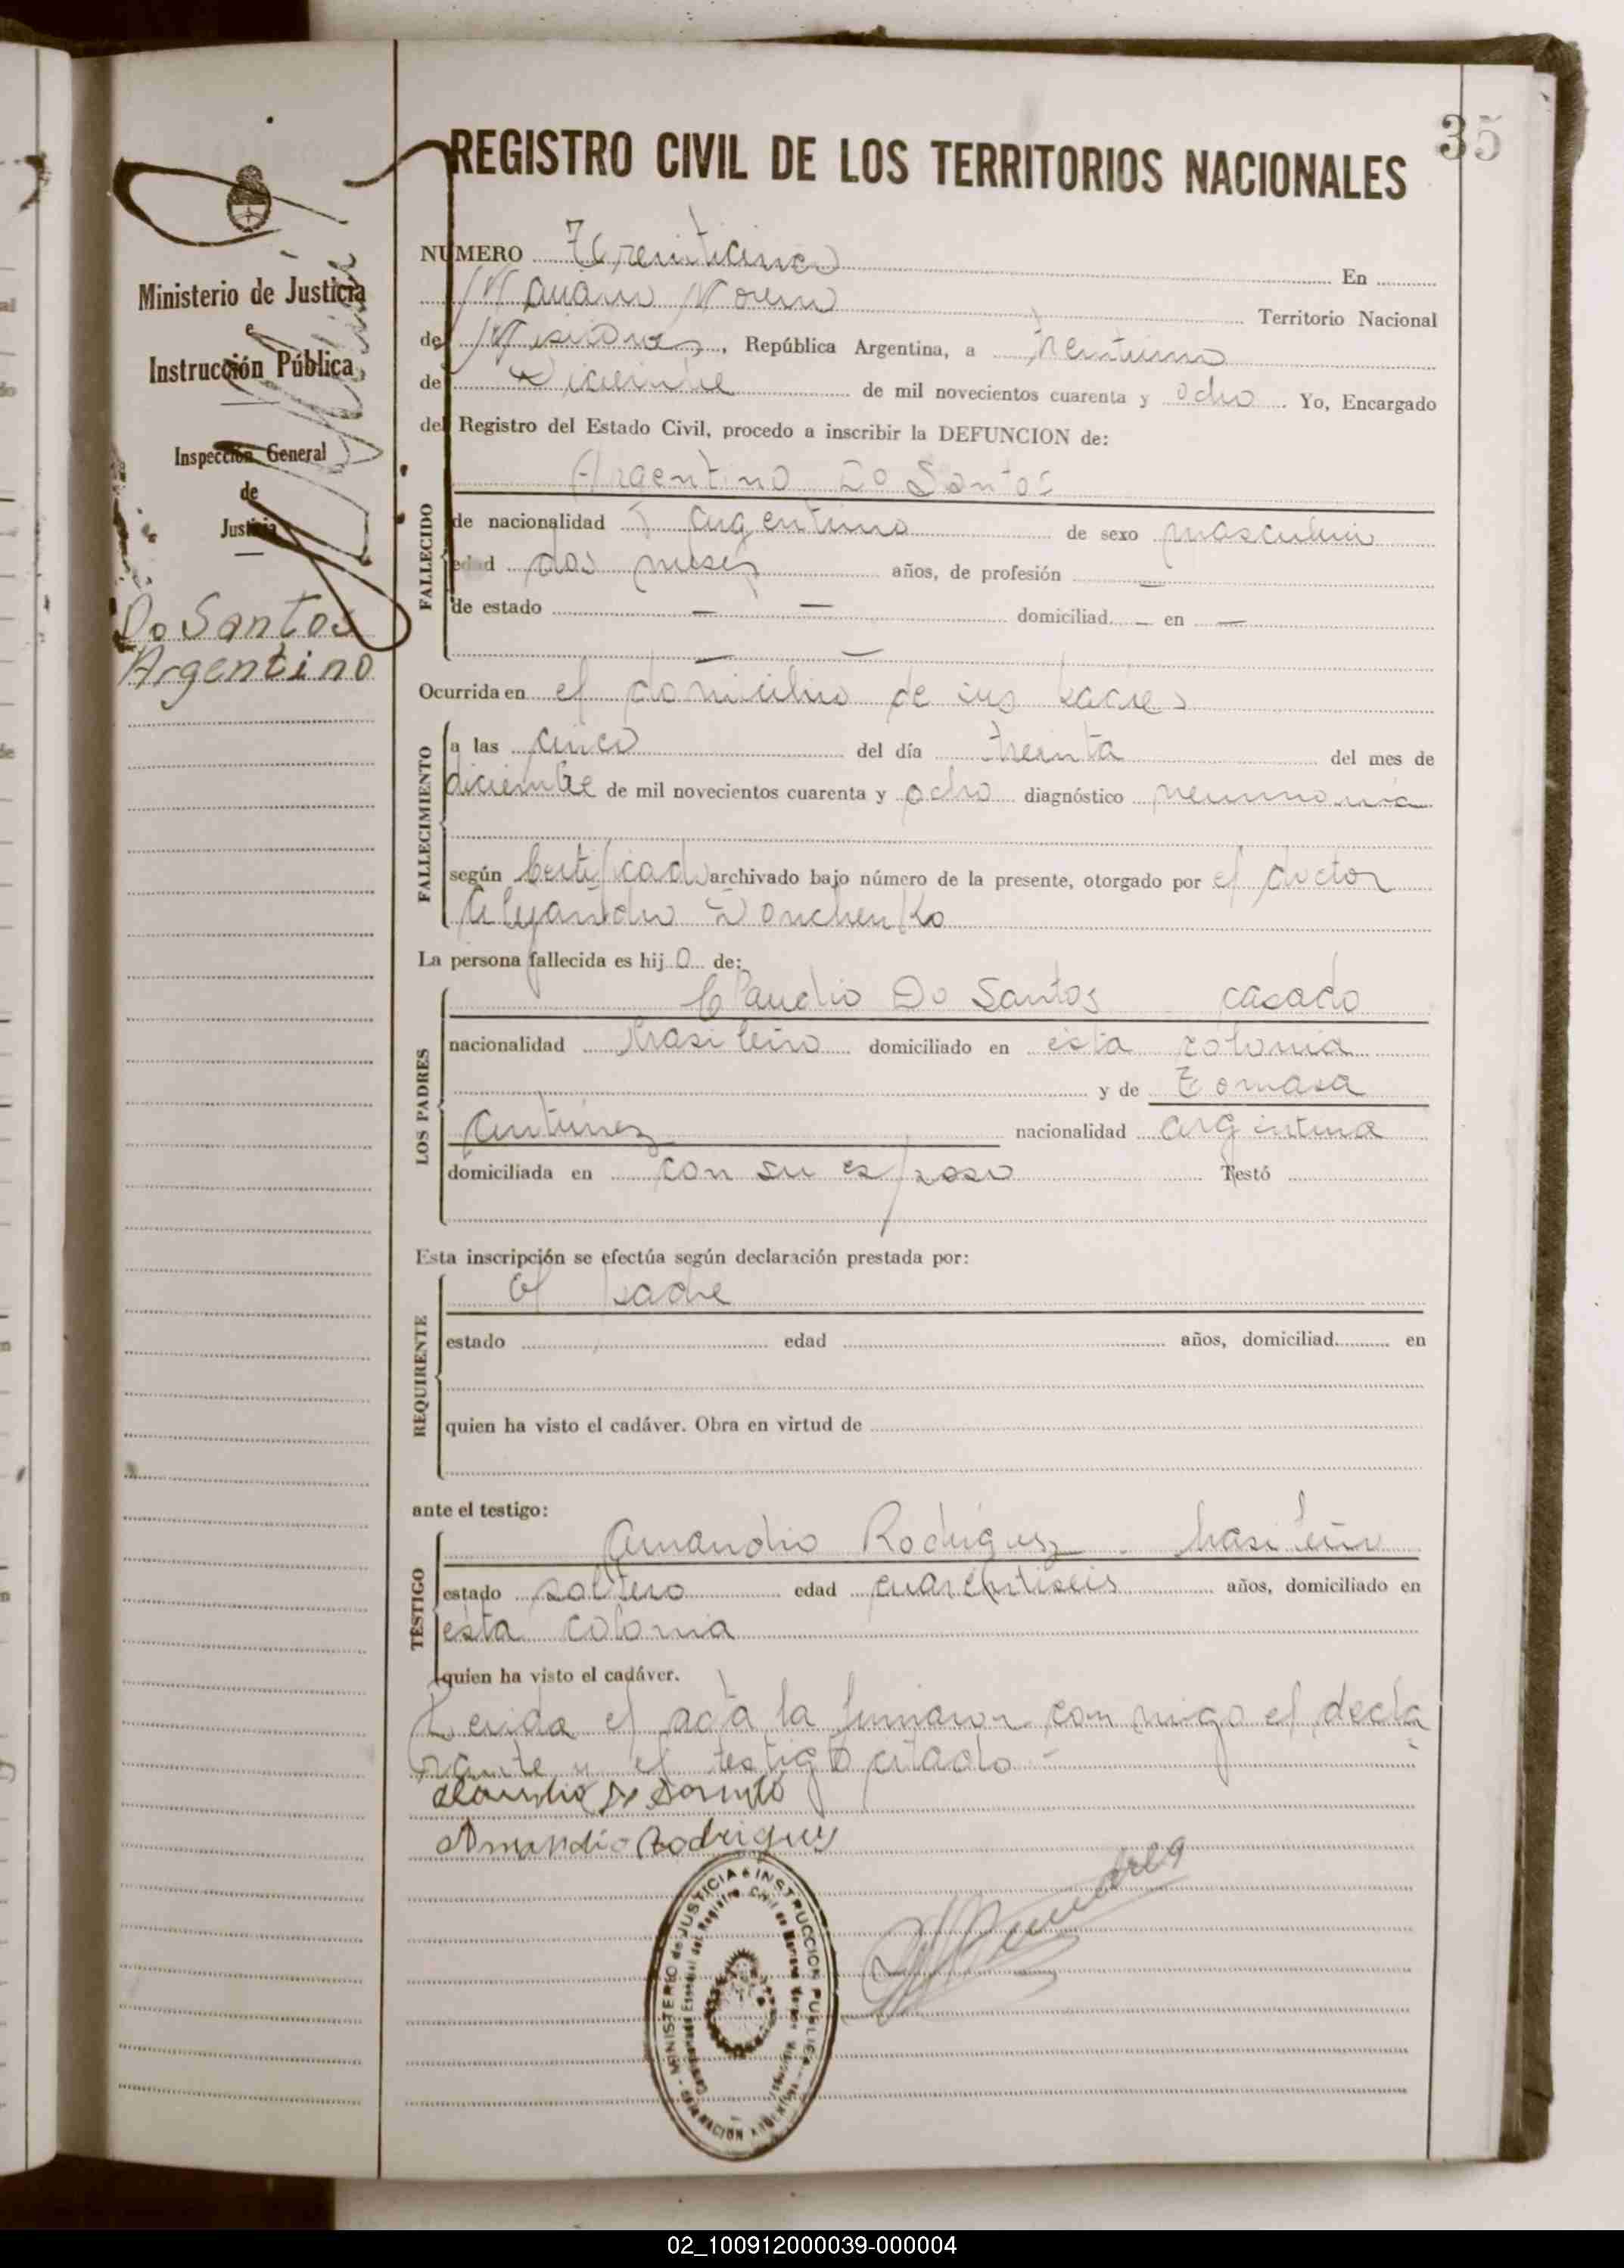 35
REGISTRO CIVIL DE LOS TERRITORIOS NACIONALES
Ministerio de Justicia
e
Instrucción Pública
Inspección General
de
Justicia
Do Santos
Argentino
NUMERO Treinticinco En
Mariano Moreno Territorio Nacional
de Misiones, República Argentina, a treintiuno
de Diciembre de mil novecientos cuarenta y ocho. Yo, Encargado
del Registro del Estado Civil, procedo a inscribir la DEFUNCION de:
Argentino Do Santos
FALLECIDO
de nacionalidad argentino de sexo masculino
edad dos meses años, de profesión —
de estado — — domiciliad — en —
— —
Ocurrida en el domicilio de sus padres
FALLECIMIENTO
a las cinco del día treinta del mes de
diciembre de mil novecientos cuarenta y ocho diagnóstico neumonia
según Certificado archivado bajo número de la presente, otorgado por el doctor
Alejandro Donchenko
La persona fallecida es hijo de:
LOS PADRES
Claudio Do Santos casado
nacionalidad brasileiro domiciliado en esta colonia
y de Tomasa
Antunez nacionalidad argentina
domiciliada en con su esposo Testó
Esta inscripción se efectúa según declaración prestada por:
REQUIRENTE
el padre
estado edad años, domiciliad en
quien ha visto el cadáver. Obra en virtud de
ante el testigo:
TESTIGO
Amandio Rodriguez - brasileiro
estado soltero edad cuarentiseis años, domiciliado en
esta colonia
quien ha visto el cadáver.
Leida el acta la firmaron con migo el decla
rante y el testigo citado -
Claudio do Santo
Amandio Rodriguez
MINISTERIO de JUSTICIA e INSTRUCCION PUBLICA
02_100912000039-000004